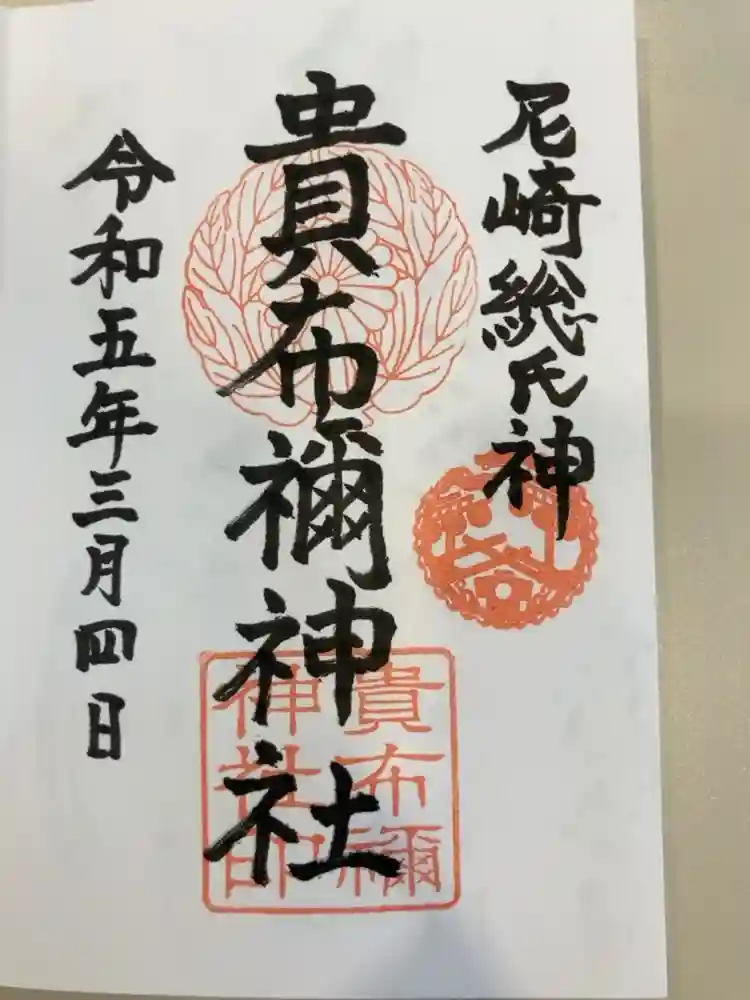 尼崎総氏神
貴布禰神社
令和五年三月四日
貴布禰
神社印